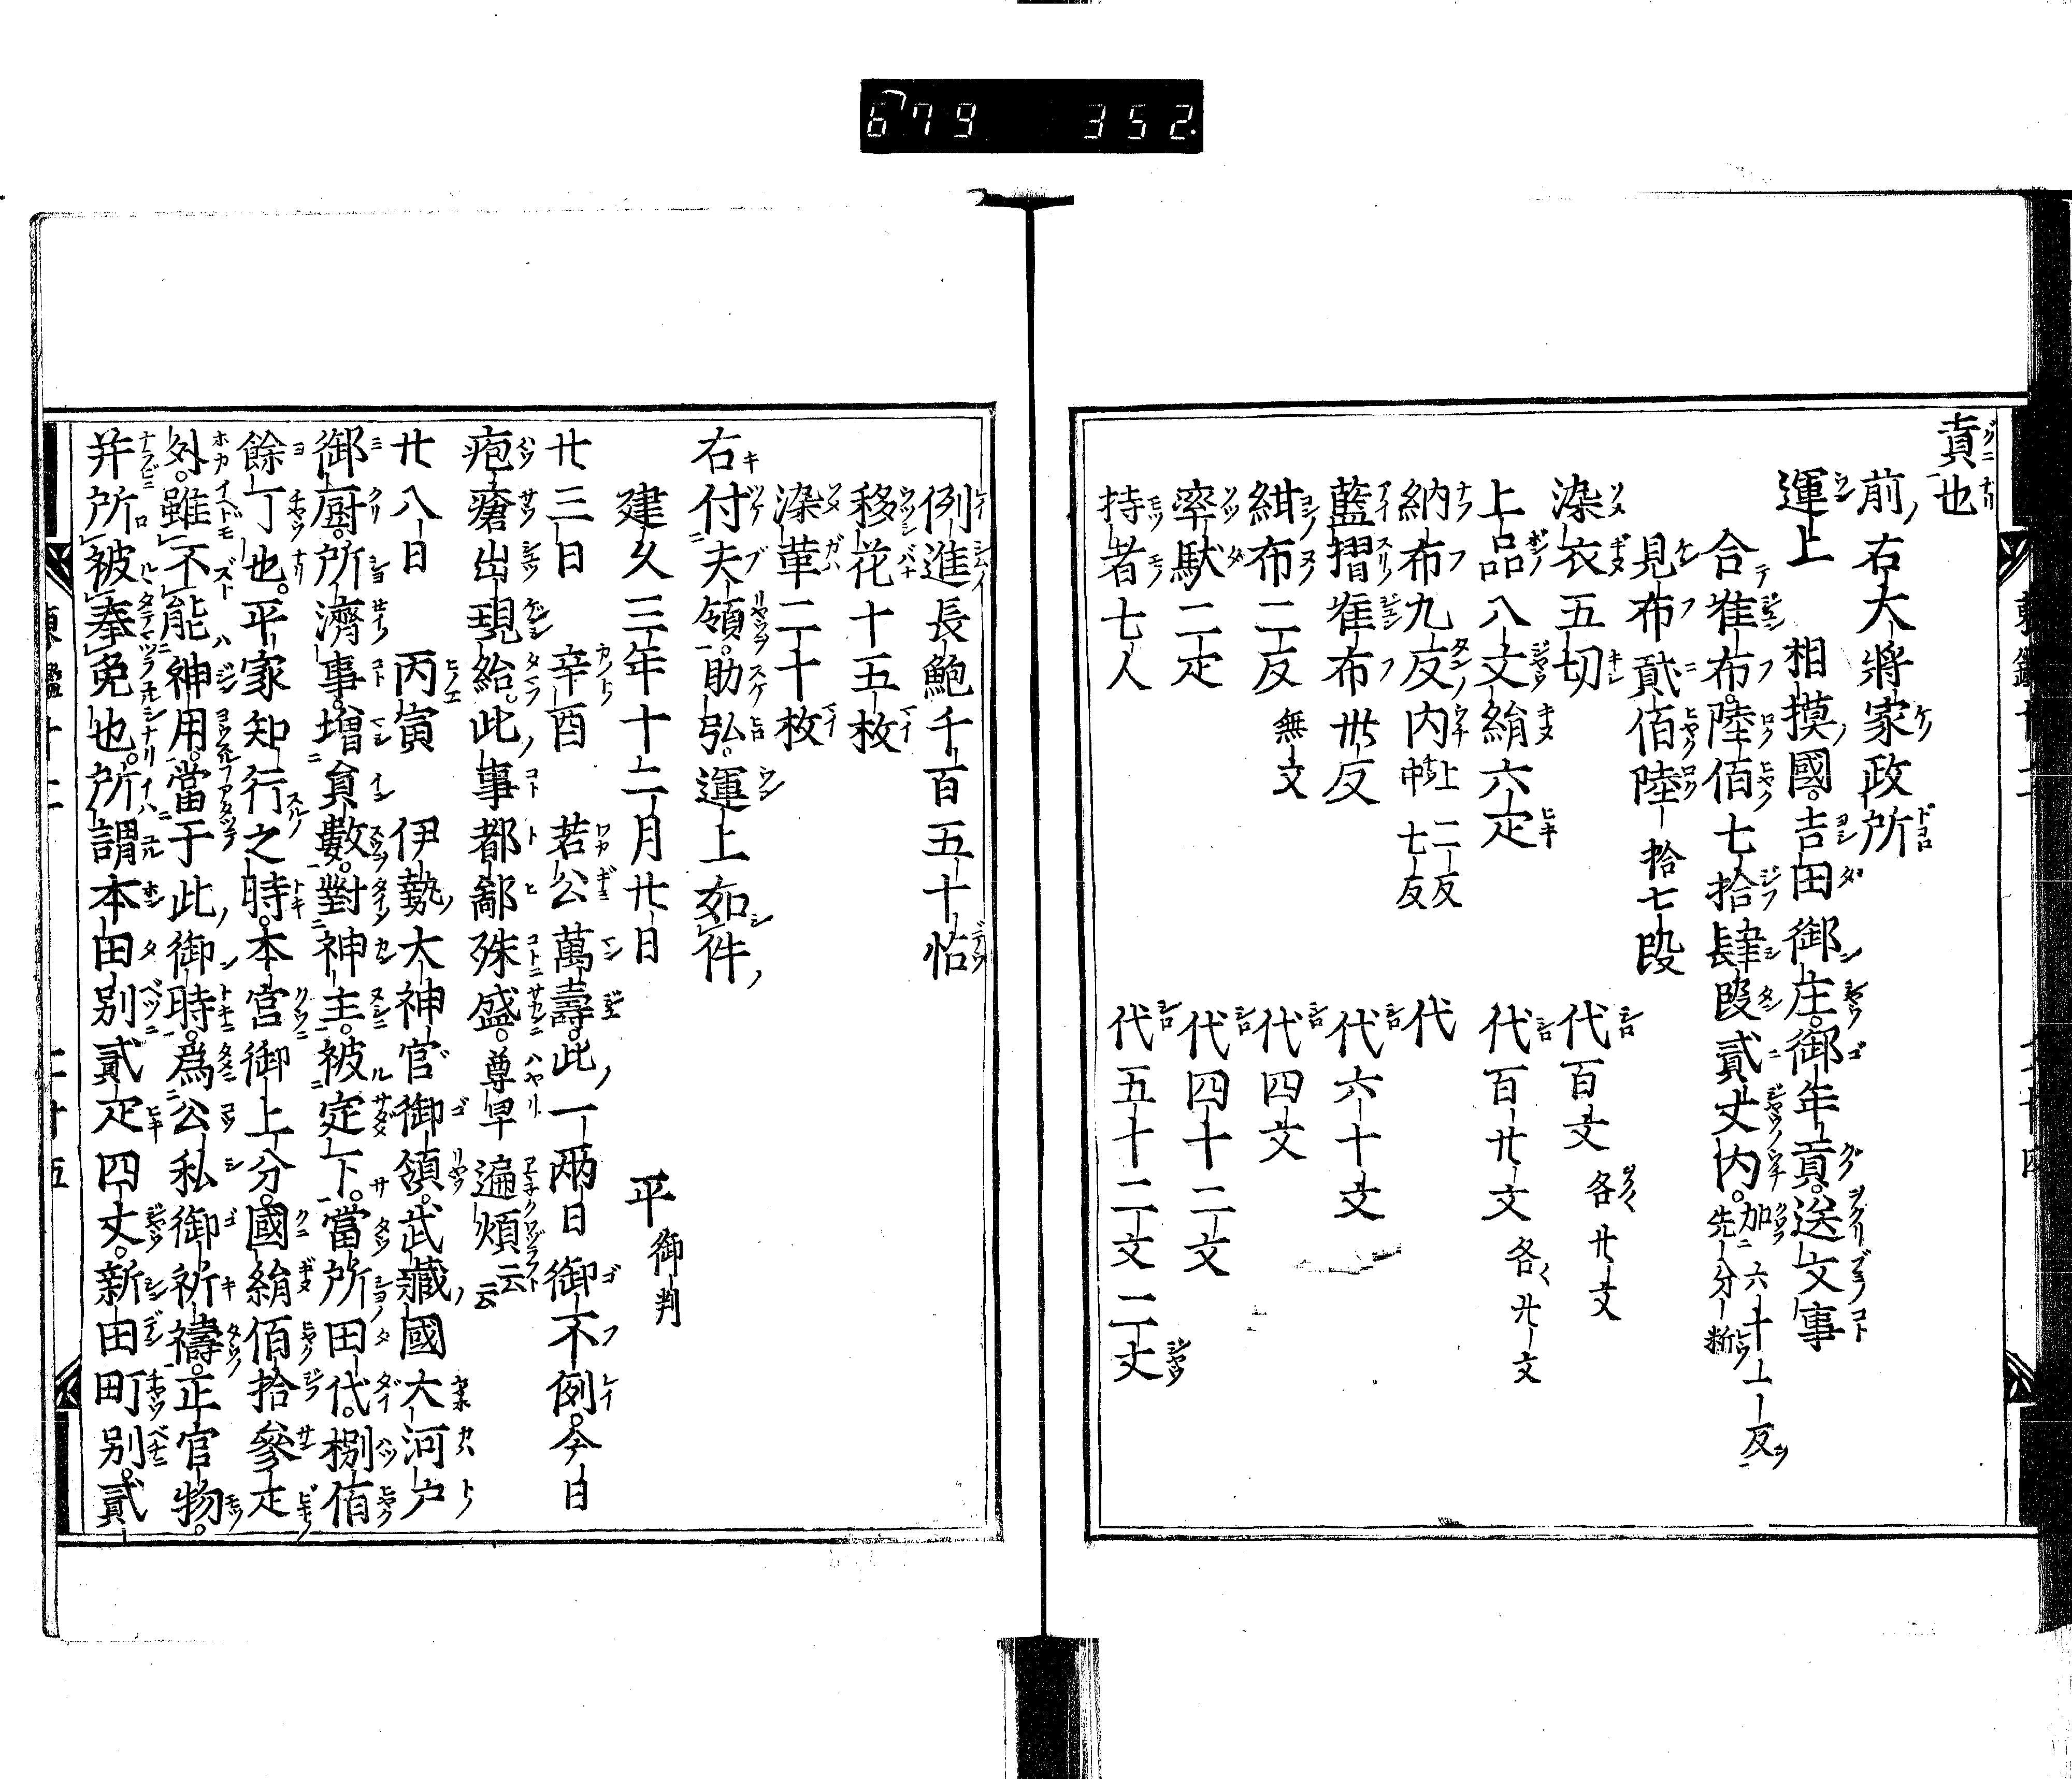 679 352
貢也
前右大將家政所
運上 相摸國。吉田御庄。御年貢。送文事
合准布。陸佰七拾肆段貳丈内。加六十一反 先分新
見布貳佰陸拾七段
染衣五切 代百文 各廿文
上品八丈絹六疋 代百廿文 各〻廿文
納布九反内 上二反 中七反 代
藍摺准布卅反 代六十文
紺布二反 無文 代四文
率駄二疋 代四十二文
持者七人 代五十二文二丈
例進長鮑千百五十帖
移花十五枚
染革二十枚
右付夫領。助弘。運上如件
建久三年十二月廿日 平 御判
廿三日 辛酉 若公萬壽。此一兩日御不例。今日
疱瘡出現給。此事都鄙殊盛。尊卑遍煩云云
廿八日 丙寅 伊勢大神官御領。武藏國大河戸
御厨。所濟事。増員數。對神主。被定下。當所田代。捌佰
餘丁也。平家知行之時。本宮御上分。國絹佰拾參疋
外。雖不能神用。當于此御時。爲公私御祈禱。正官物。
并所被奉免也。所謂本田別貳疋四丈。新田町別。貳